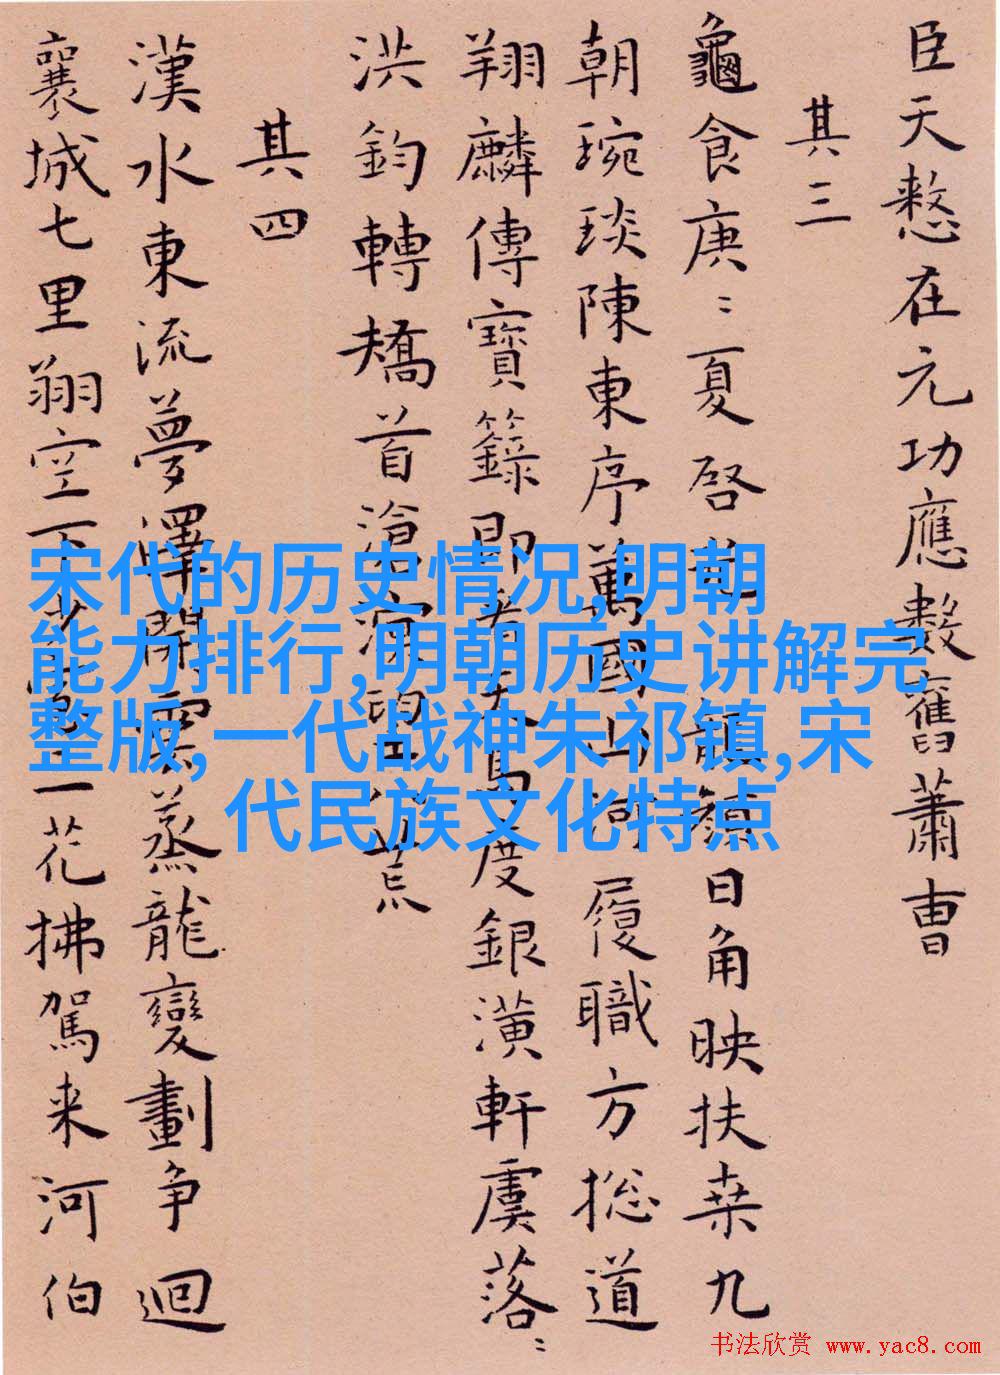 臣天憗在元功應數舊蕭曹
其三
龜食庚〻夏啓顏日角映扶桒九
朝琬琰陳東序萬國山河履職方捴道
翔麟傳寶籙即看天馬度銀潢軒虞落〻
洪鈞轉矯首滄溟荒
其四
漢水東流夢澤開雲蒸龍變劃争迴
襄城七里翔空下一花拂駕来河伯
宋代的历史情况,明朝
能力排行,明朝历史讲解完
整版,一代战神朱祁镇,宋
代民族文化特点
书法欣赏 www.yac8.com